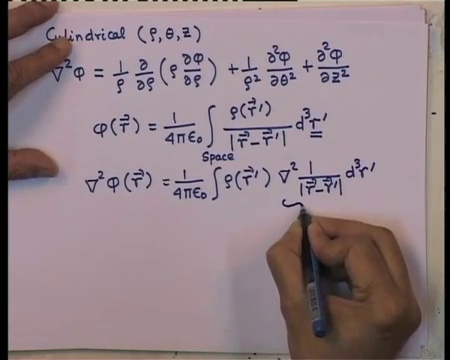 Cylindrical (ρ, θ, z)
∇²φ = 1/ρ ∂/∂ρ (ρ ∂φ/∂ρ) + 1/ρ² ∂²φ/∂θ² + ∂²φ/∂z²
φ(r⃗) = 1/4πε₀ ∫ ρ(r⃗′)/|r⃗−r⃗′| d³r′
Space
∇²φ(r⃗) = 1/4πε₀ ∫ ρ(r⃗′) ∇² 1/|r⃗−r⃗′| d³r′